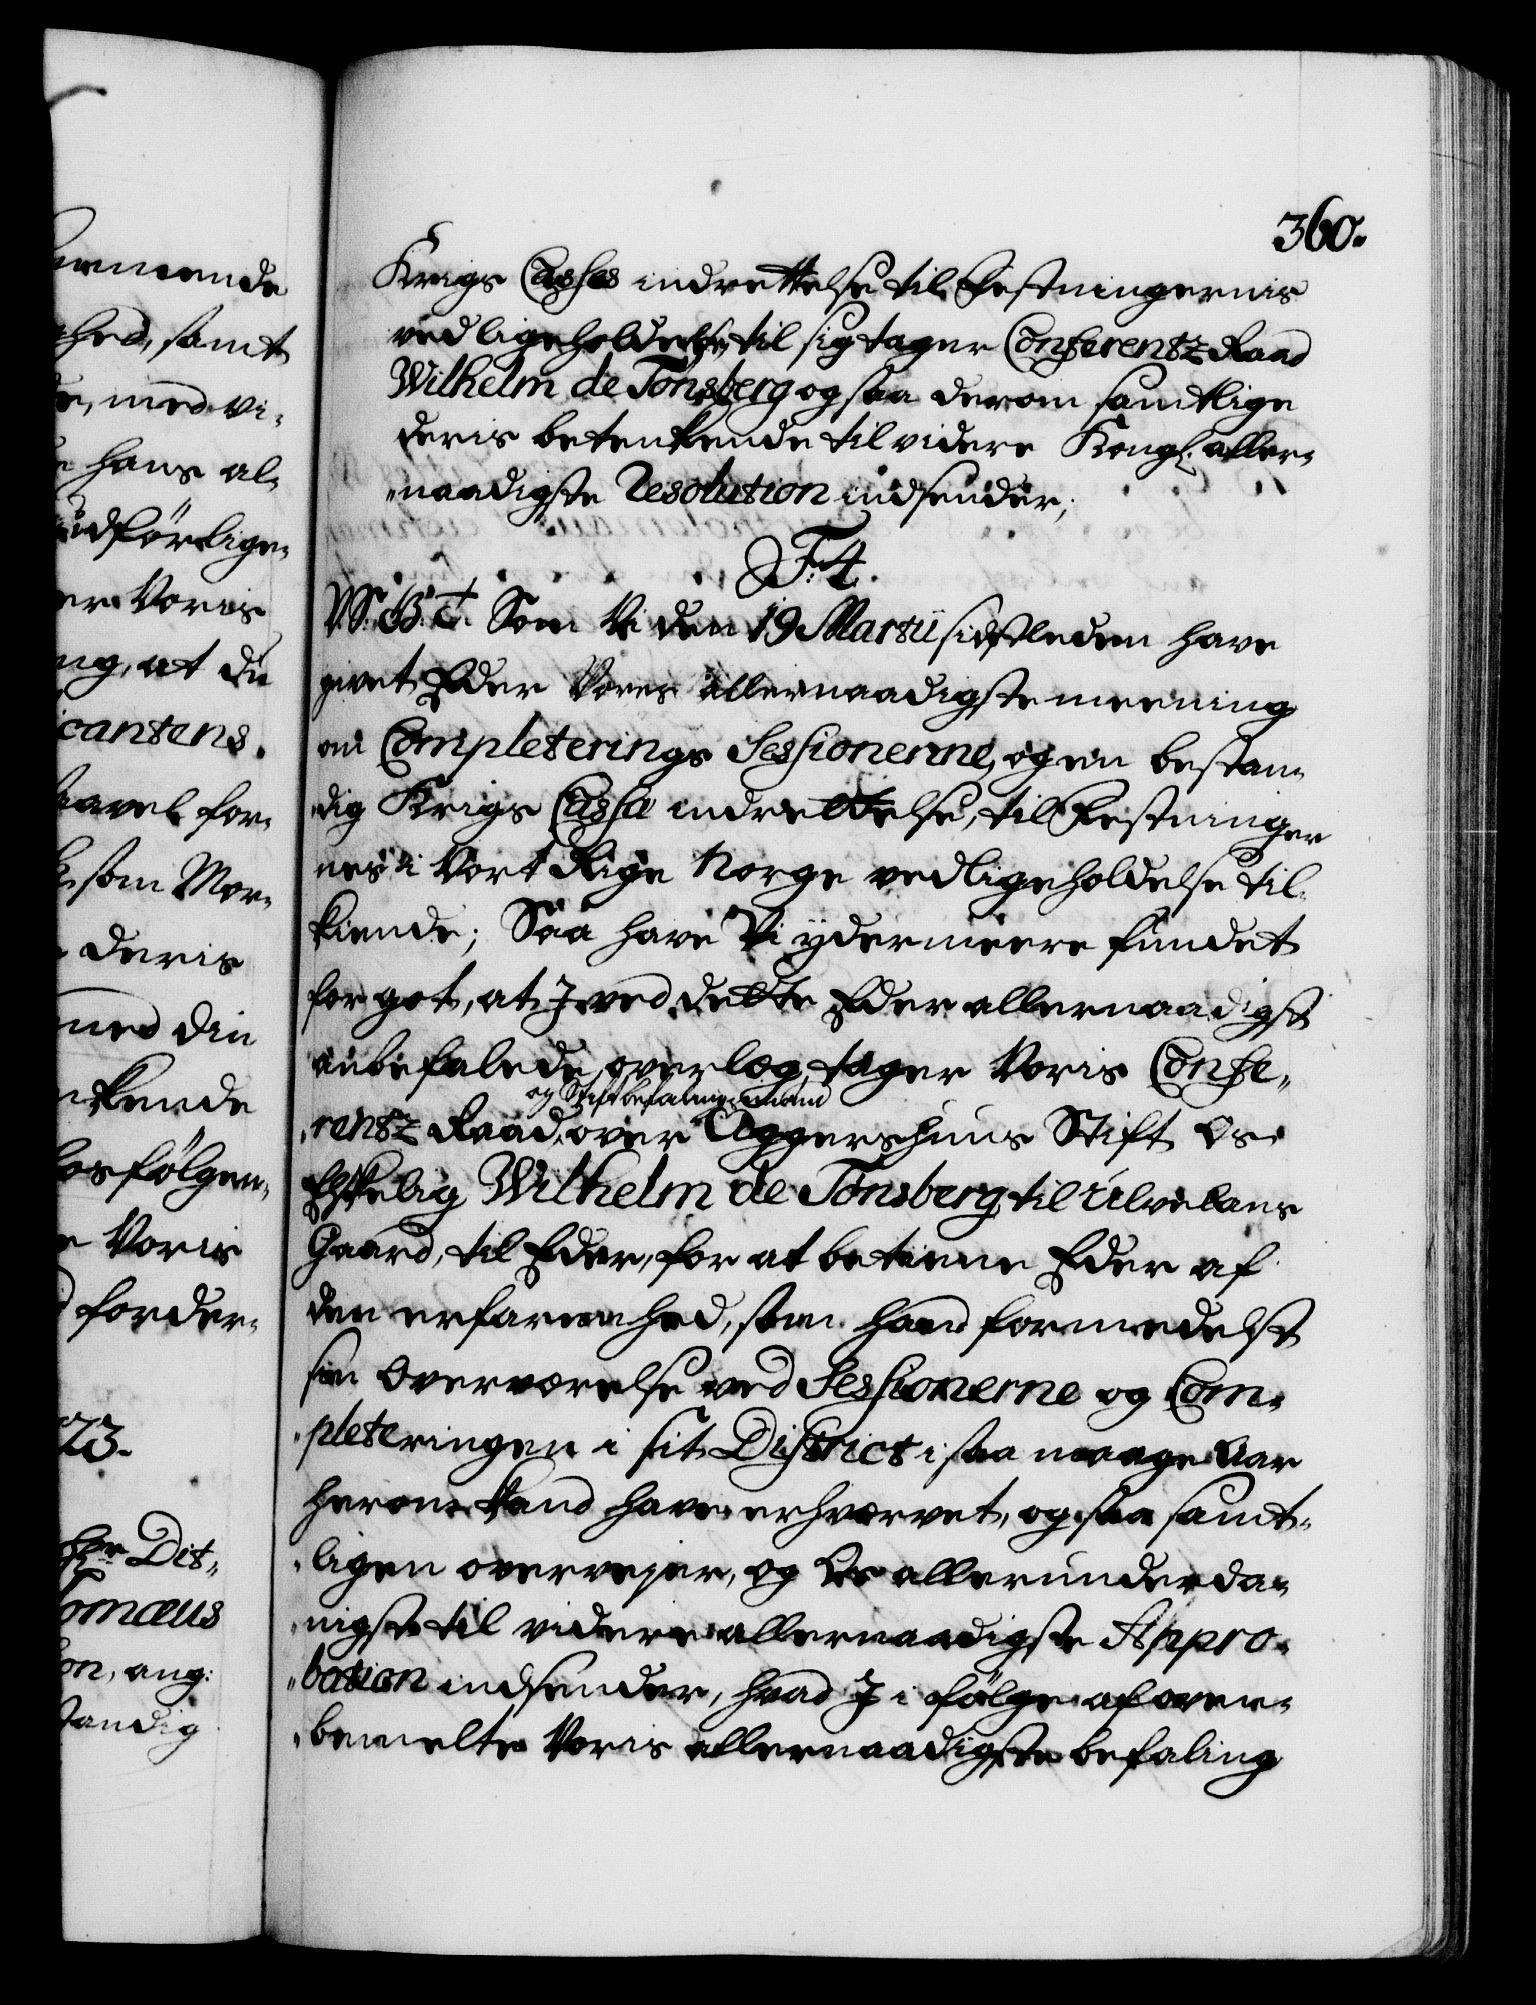 360.
Krigs Casses indrettelse til Festningernis
vedligeholdelse, til sig tager Conferentz Raad
Wilhelm de Tonsberg og saa derom samtlige
deris betenkende til videre Kongl. aller-
naadigste Resolution indsender;
F 4.
V.S.G.T. Som Vi den 19 Martii sidstleden have
givet Eder Vores allernaadigste meening
om Completerings Sessionerne, og en bestan-
dig Krigs Cassa indrettelse, til Festninger
nes i Vort Rige Norge vedligeholdelse til-
kiende; Saa have Vi ydermeere fundet
for got, at J ved dette Eder allernaadigst
anbefalede overlæg, tager Voris Confe-
og Stiftbefalingsmand
rentz Raad, over Aggershuus Stift Os
Elskelig Wilhelm de Tonsberg til Ulvelans
Gaard, til Eder, for at betiene Eder af
den erfarenhed, som hand formedelst
sin Overværelse ved Sessionerne og Com-
pleteringen i sit District i saa mange Aar
herom kand have erhværvet, og saa samt-
ligen overvejer, og Os allerunderda-
nigst til videre allernaadigste Appro-
bation indsender, hvad J i følge af oven-
bemelte Voris allernaadigste befaling
ermeende
hed, samt
de, med vi-
hans al-
udførlige-
er Voris
ng, at du
icantens.
avel for-
som Mor-
deris
med din
nkende
os følgen-
Voris
forder-
23.
Hr Dit-
omæus
on, ang:
tandig